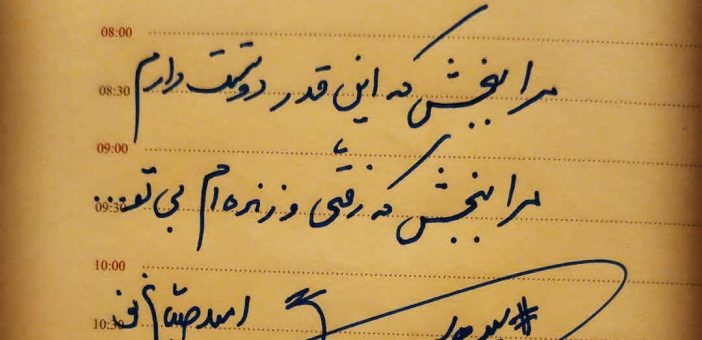 08:00
مرا ببخش که این قدر دوستت دارم
08:30
09:00
مرا ببخش که رفتی و زنده ام بی تو...
09:30
10:00
امید صباغ نو
10:30
#